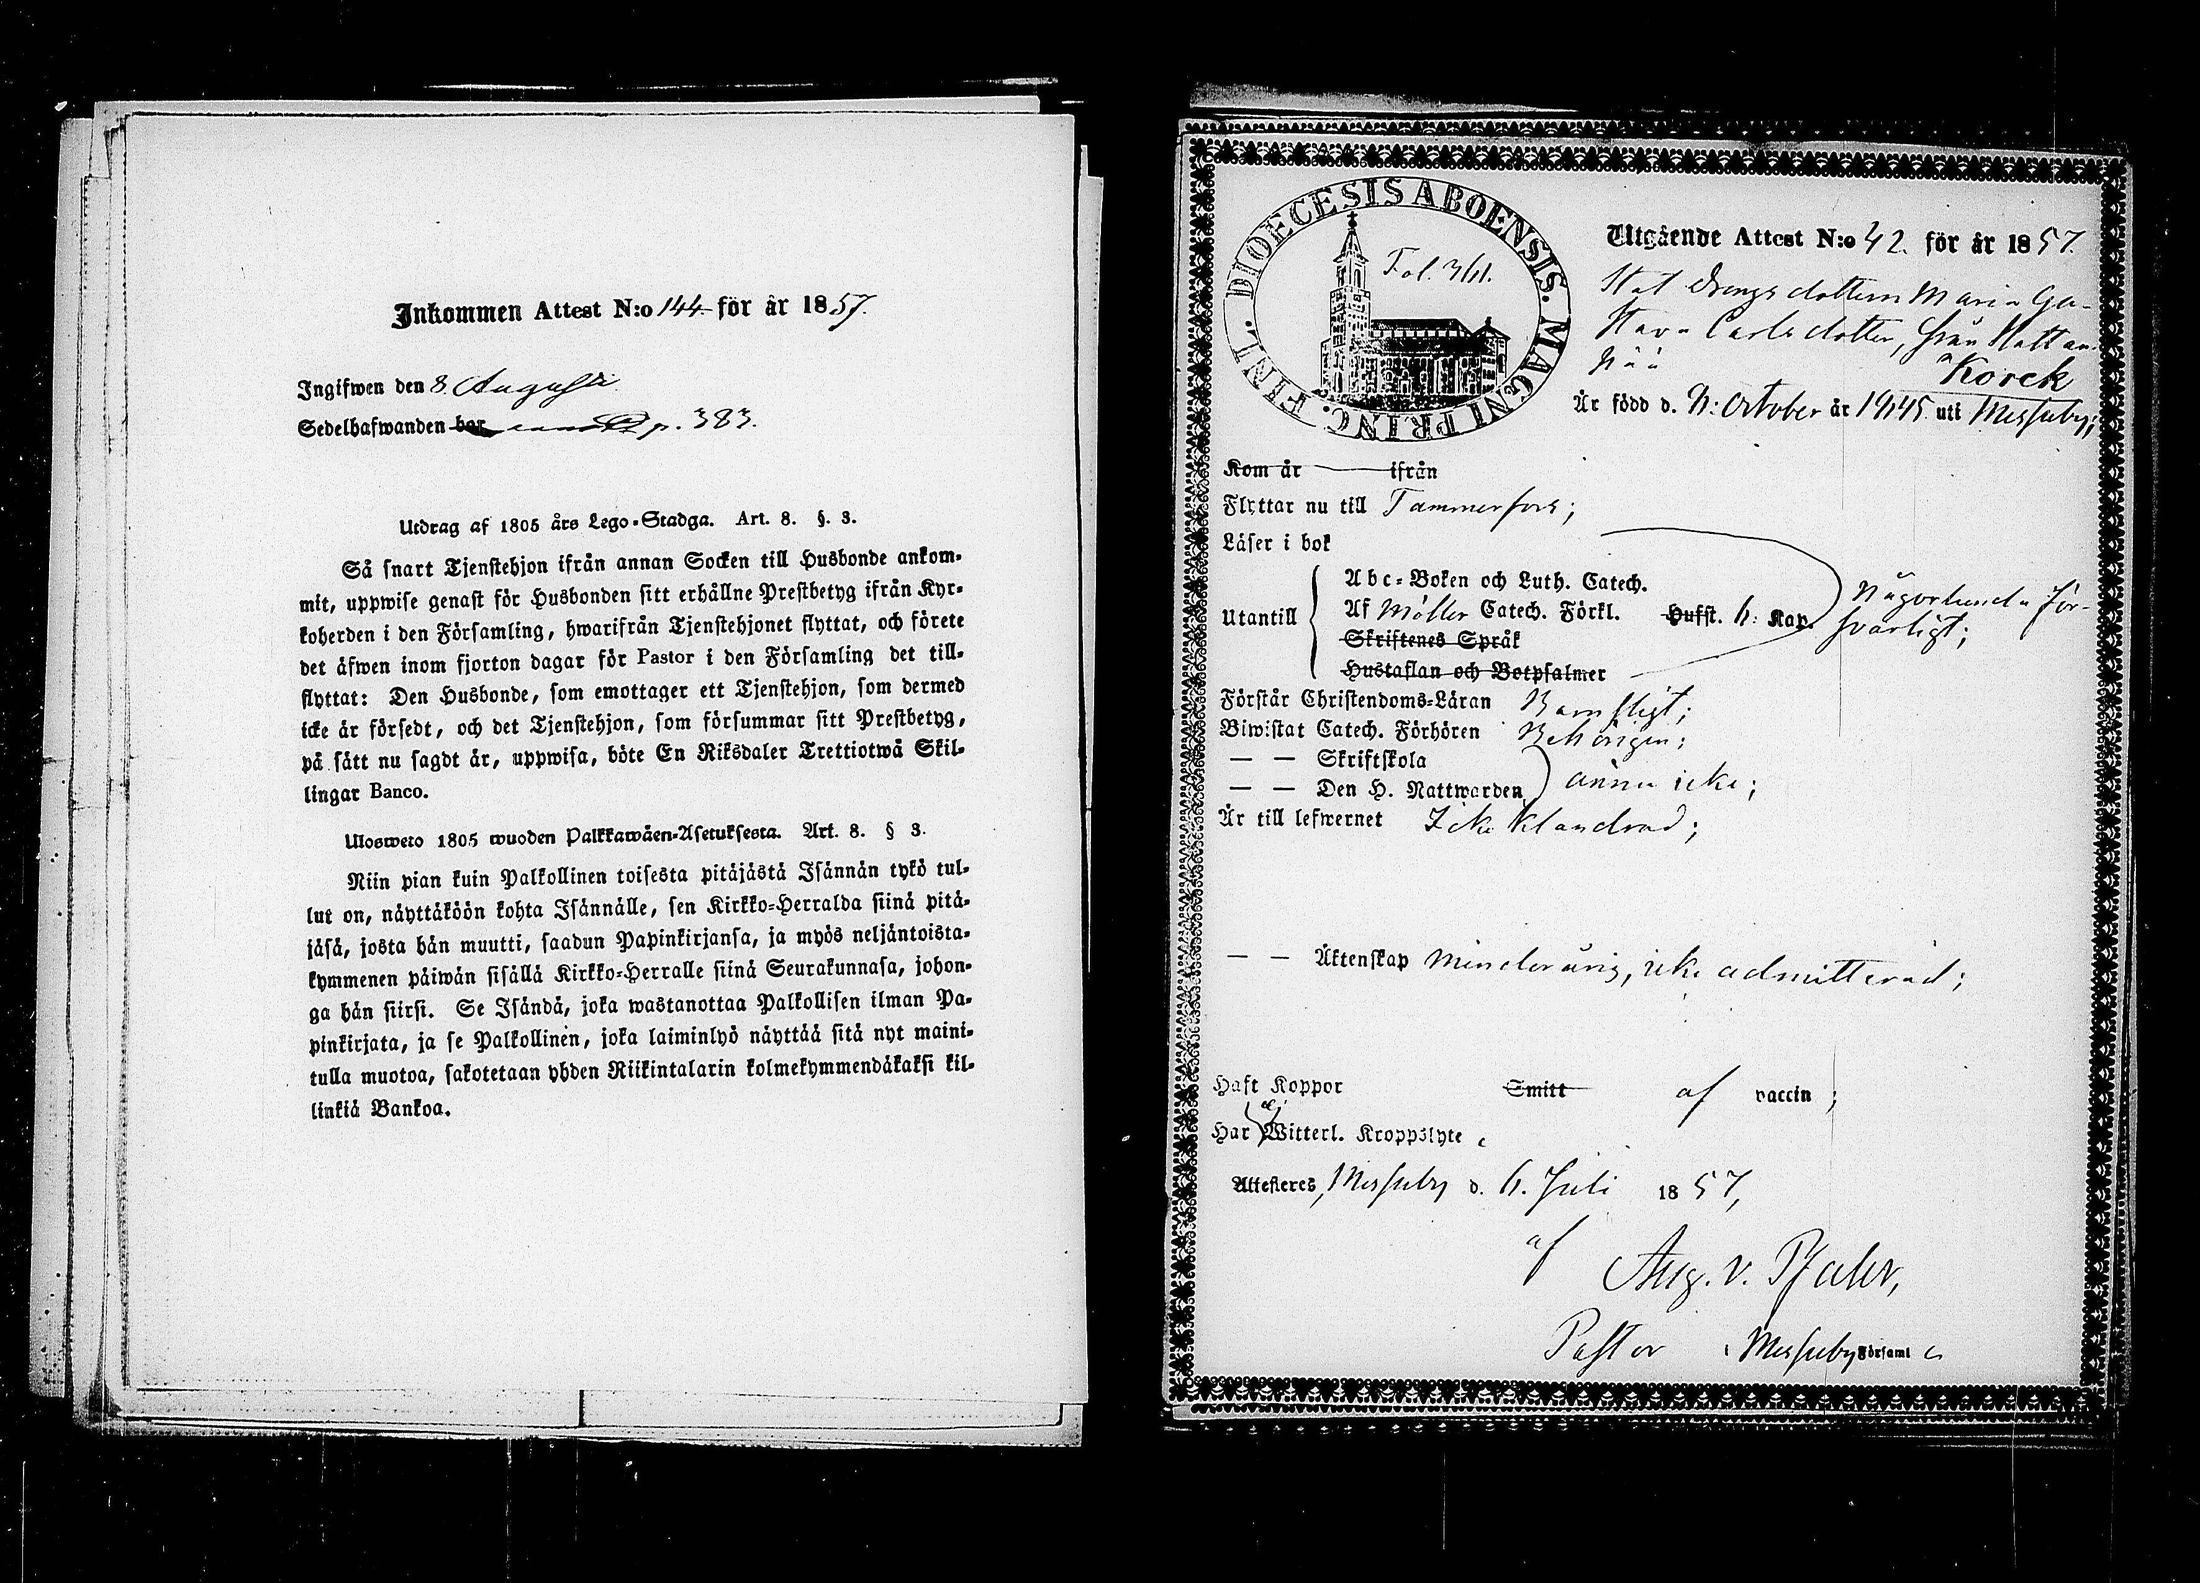 Inkommen Attest N:o 144 för år 1857.
Ingifwen den 8 Augusti
Sedelhafwanden bor p. 383.
Utdrag af 1805 års Lego-Stadga. Art. 8. §. 3.
Så snart Tjenstehjon ifrån annan Socken till Husbonde ankom-
mit, uppwise genast för Husbonden sitt erhållne Prestbetyg ifrån Kyr-
koherden i den Församling, hwarifrån Tjenstehjonet flyttat, och förete
det äfwen inom fjorton dagar för Pastor i den Församling det till-
flyttat: Den Husbonde, som emottager ett Tjenstehjon, som dermed
icke är försedt, och det Tjenstehjon, som försummar sitt Prestbetyg,
på sätt nu sagdt är, uppwisa, böte En Riksdaler Trettiotwå Skil-
lingar Banco.
Ulosweto 1805 wuoden Palkkawäen-Asetuksesta. Art. 8. § 3.
Niin pian kuin Palkollinen toisesta pitäjästä Isännän tykö tul-
lut on, näyttäköön kohta Isännälle, sen Kirkko-Herralda siinä pitä-
jäsä, josta hän muutti, saadun Papinkirjansa, ja myös neljäntoista-
kymmenen päiwän sisällä Kirkko-Herralle siinä Seurakunnasa, johon-
ga hän siirsi. Se Isändä, joka wastanottaa Palkollisen ilman Pa-
pinkirjata, ja se Palkollinen, joka laiminlyö näyttää sitä nyt maini-
tulla muotoa, sakotetaan yhden Riikintalarin kolmekymmendäkaksi kil-
linkiä Bankoa.
DIOECESIS ABOENSIS. MAGNI PRINC. FINL.
Fol. 341.
Utgående Attest N:o 42. för år 1857.
Stat Drengs dottern Maria Gu-
stava Carlsdotter, från Hattan-
pää
Korck
Är född d. 4: October år 1845. uti Messuby;
Kom år ifrån
Flyttar nu till Tammerfors;
Läser i bok
Utantill
Abc-Boken och Luth. Catech.
Af Möller Catech. Förkl. Hufst. 6: Kap.
Skriftenes Språk
Hustaflan och Botpsalmer
Någorlunda för-
svarligt;
Förstår Christendoms-Läran Barnsligt;
Biwistat Catech. Förhören Behörigen;
— — Skriftskola
— — Den H. Nattwarden
ännu icke;
Är till lefwernet Icke klandrad;
— — Äktenskap minderårig, icke admitterad;
Haft Koppor Smitt af vaccin;
ej
Har Witterl. Kroppslyte
Attesteres, Messuby d. 6. Juli 1857,
af
Aug. v. Pfaler,
Pastor i Messuby Församl